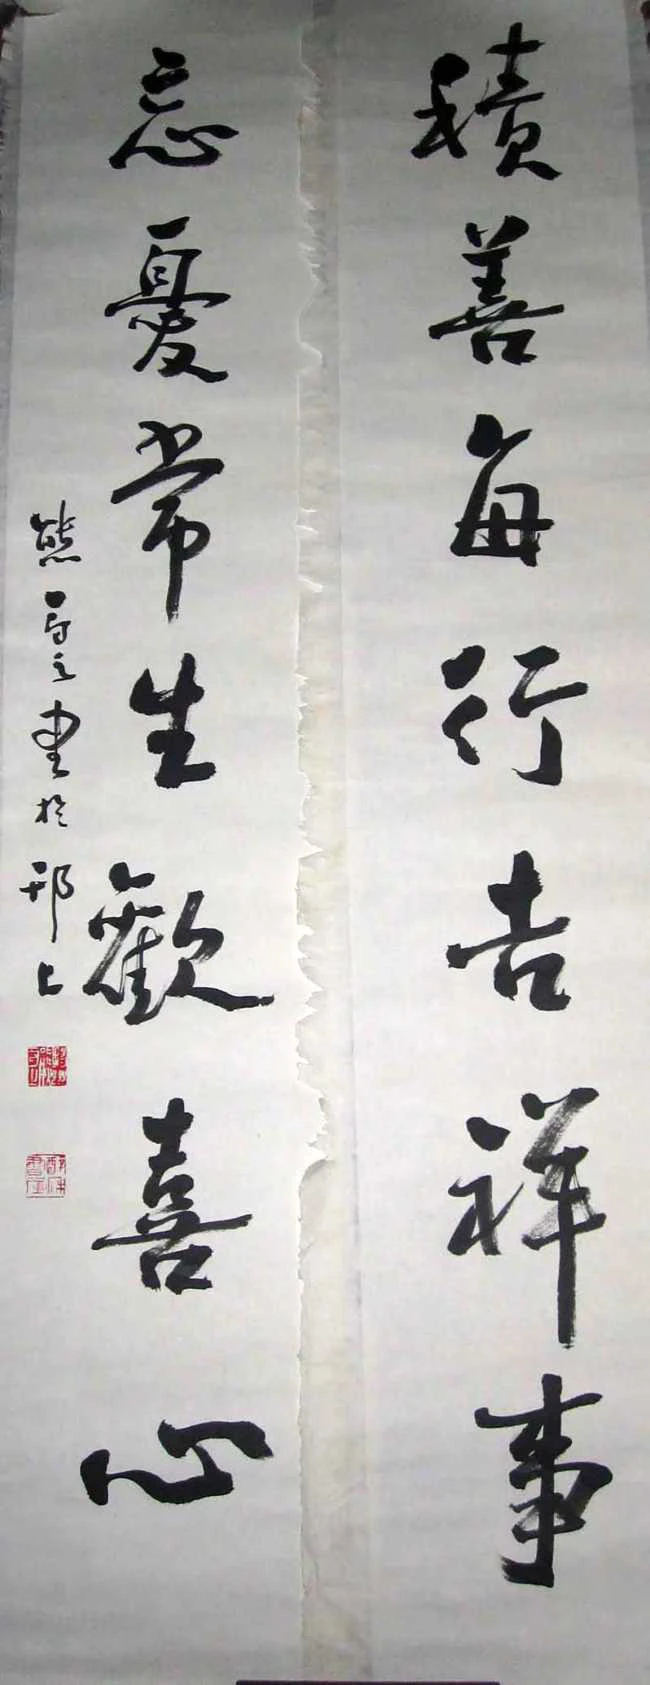 積善每行吉祥事
忘憂常生歡喜心
熊 之書於邗上